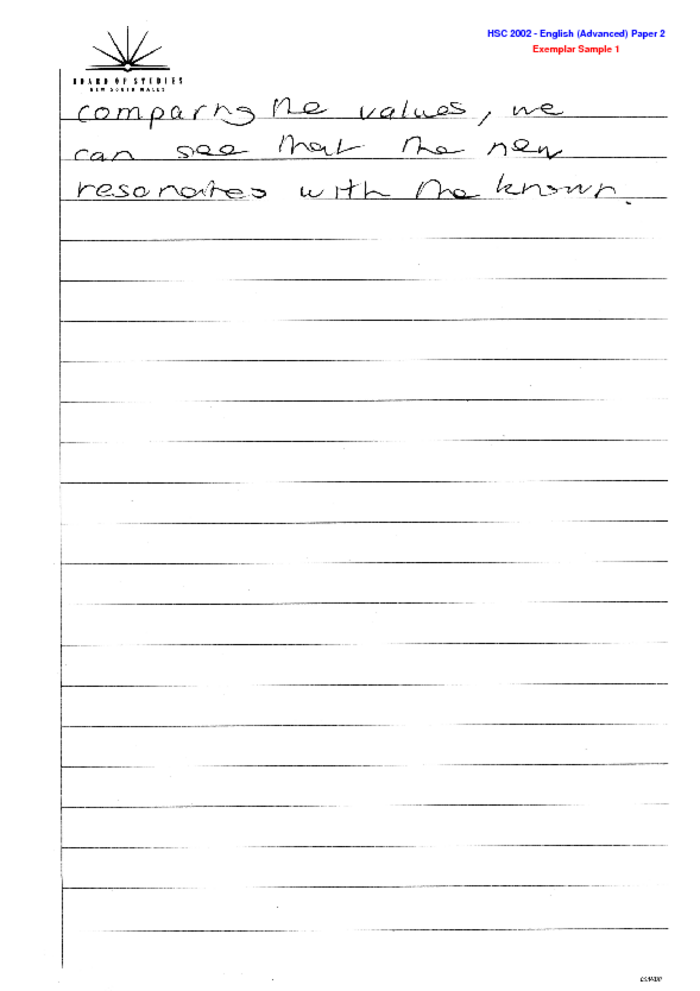 HSC 2002 - English (Advanced) Paper 2
Exemplar Sample 1
BOARD OF STUDIES
NEW SOUTH WALES
comparing the values, we
can see that the new
resonates with the known.